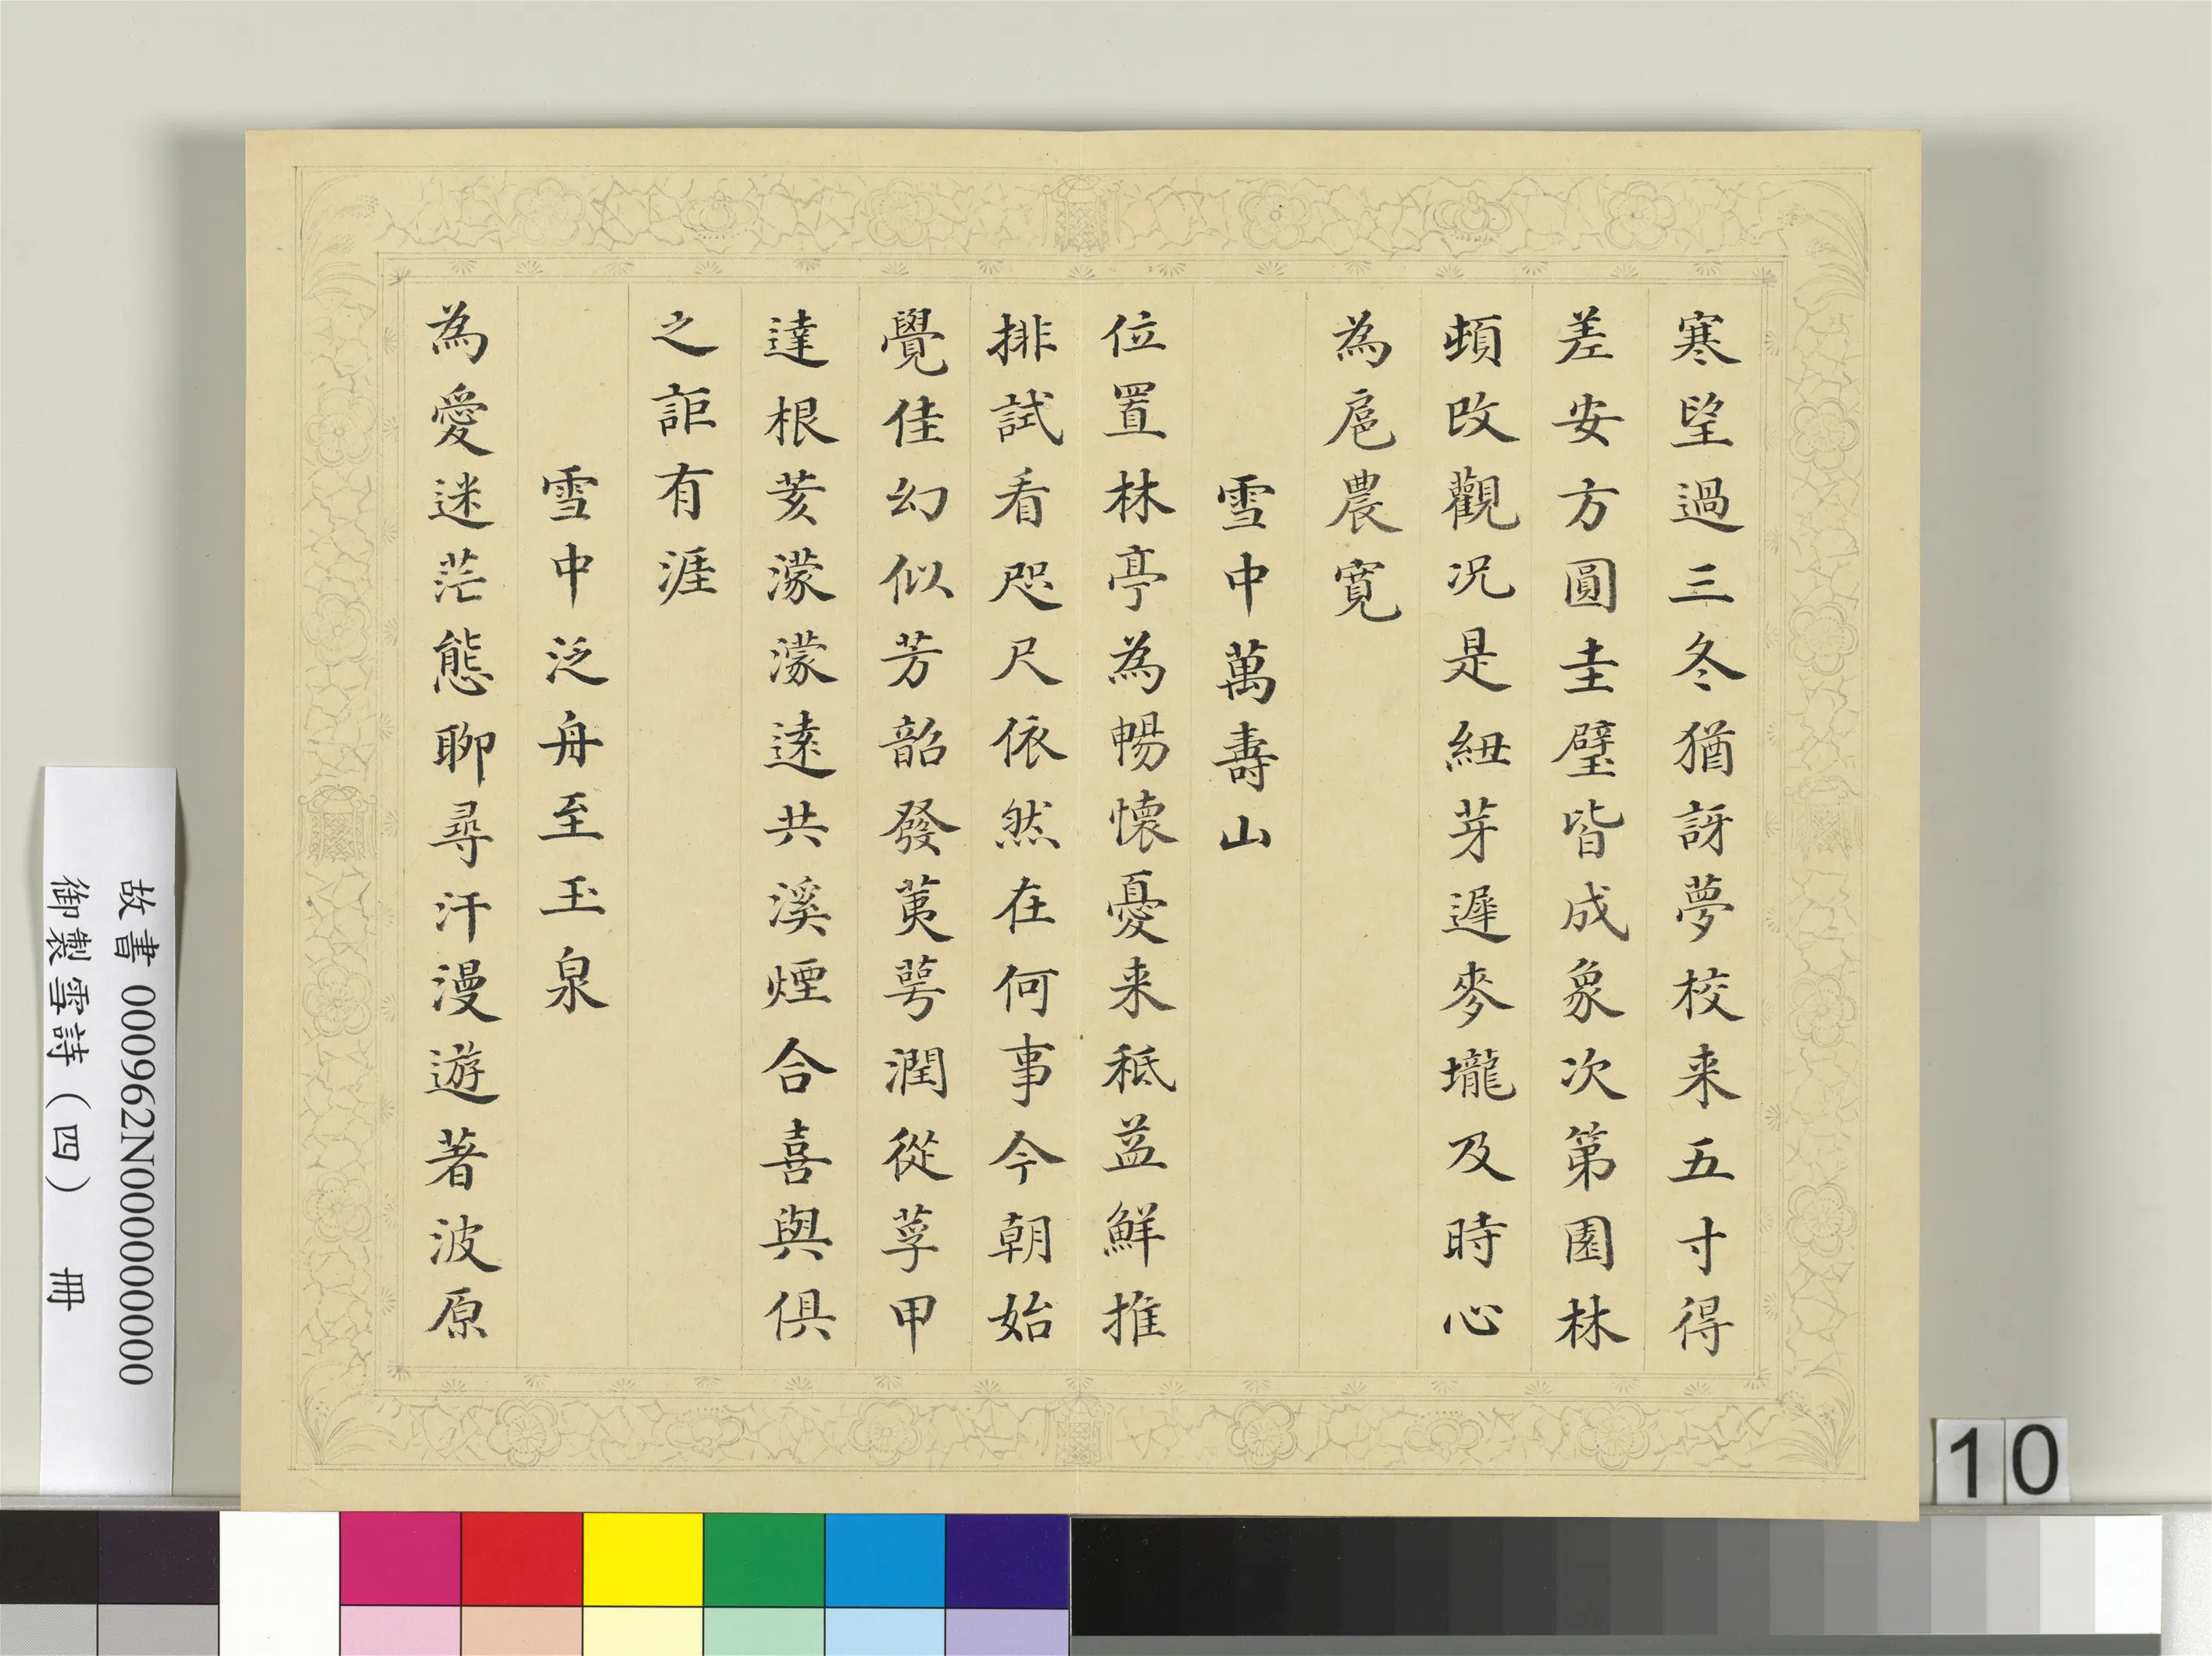 寒望過三冬猶訝夢校来五寸得
差安方圓圭璧皆成象次第園林
頓改觀况是紐芽遲麥壠及時心
為扈農寛
雪中萬壽山
位置林亭為暢懷憂来秪益鮮推
排試看咫尺依然在何事今朝始
覺佳幻似芳韶發荑萼潤從莩甲
達根荄濛濛逺共溪煙合喜與俱
之詎有涯
雪中泛舟至玉泉
為愛迷茫態聊尋汗漫遊著波原
故書 000962N000000000
御製雪詩（四） 冊
10